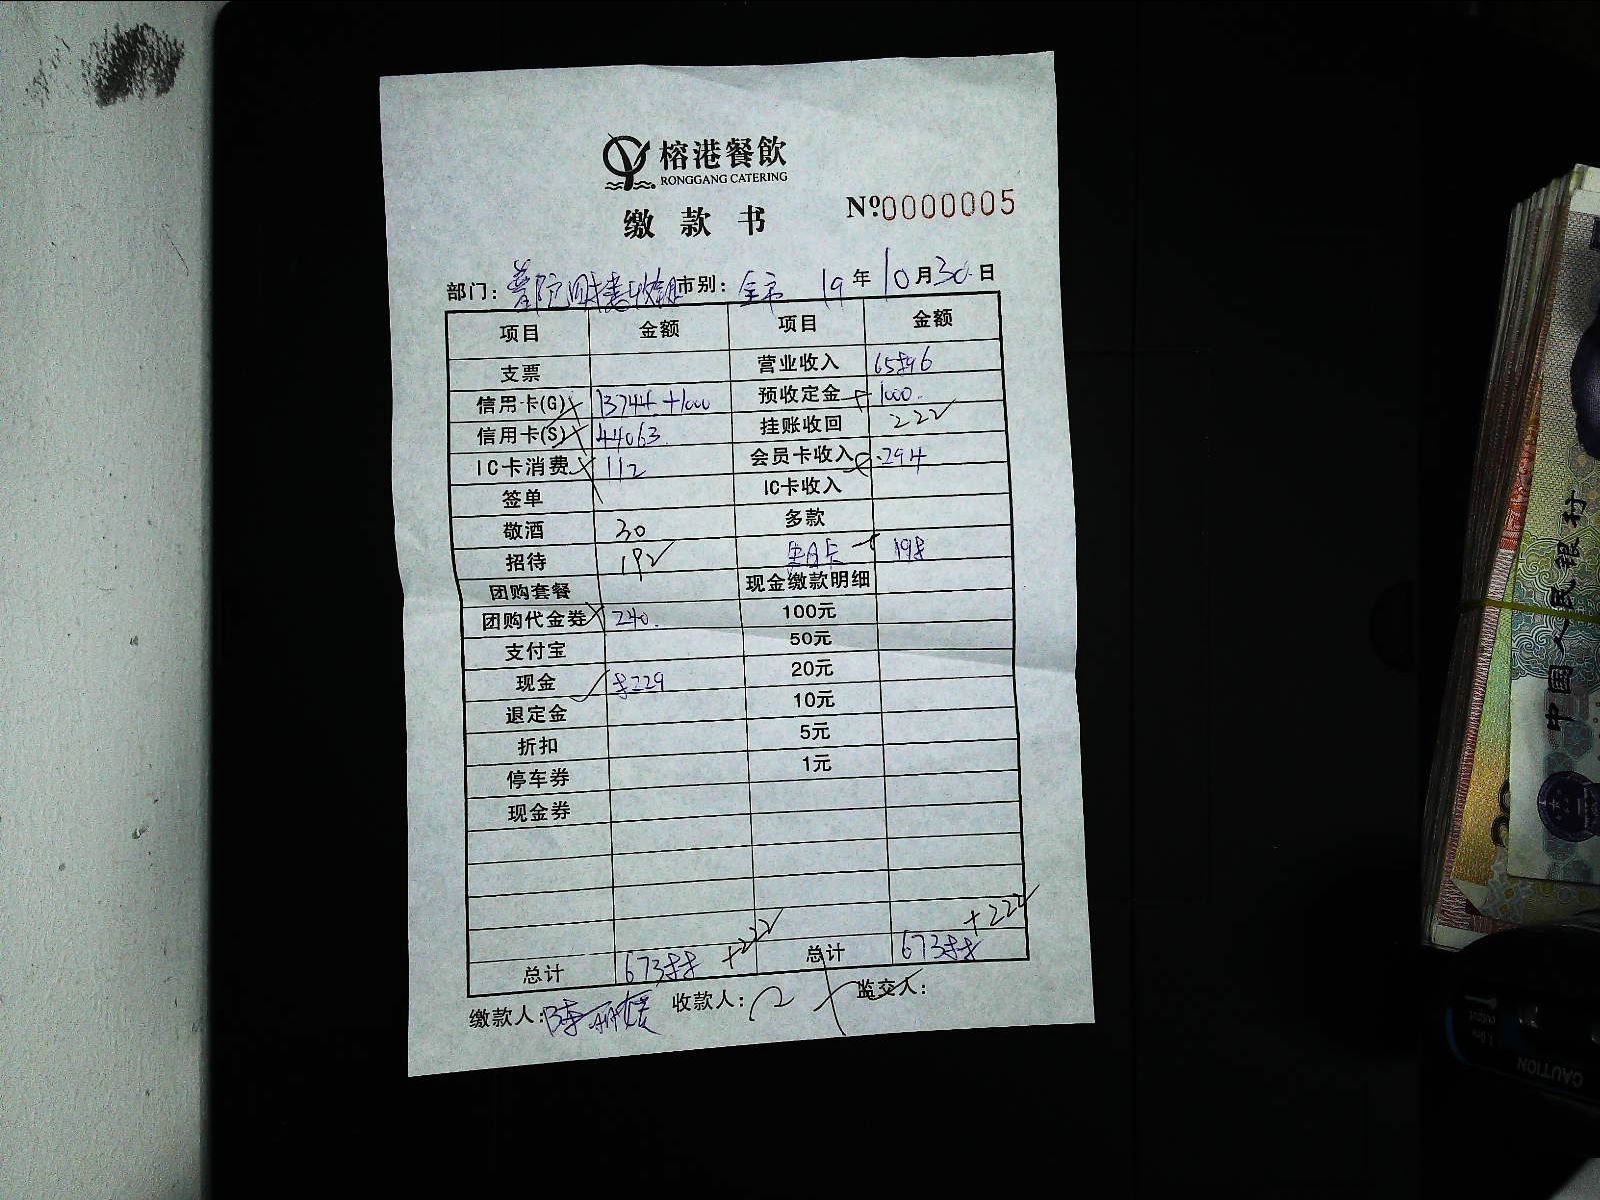 榕港餐飲
RONGGANG CATERING
缴款书 Nº0000005
部门: 市别: 全市 19年10月30日
项目 金额 项目 金额
支票 营业收入 65896
信用卡(G) 13744+1000 预收定金 1000.
信用卡(S) 44063. 挂账收回 222
IC卡消费 112 会员卡收入 294
签单 IC卡收入
敬酒 30 多款
招待 192 生日卡 198
团购套餐 现金缴款明细
团购代金券 240. 100元
支付宝 50元
现金 8229 20元
退定金 10元
折扣 5元
停车券 1元
现金券
+222 +222
总计 67388 总计 67388
缴款人: 收款人: 监交人:
中国人民银行
CAUTION